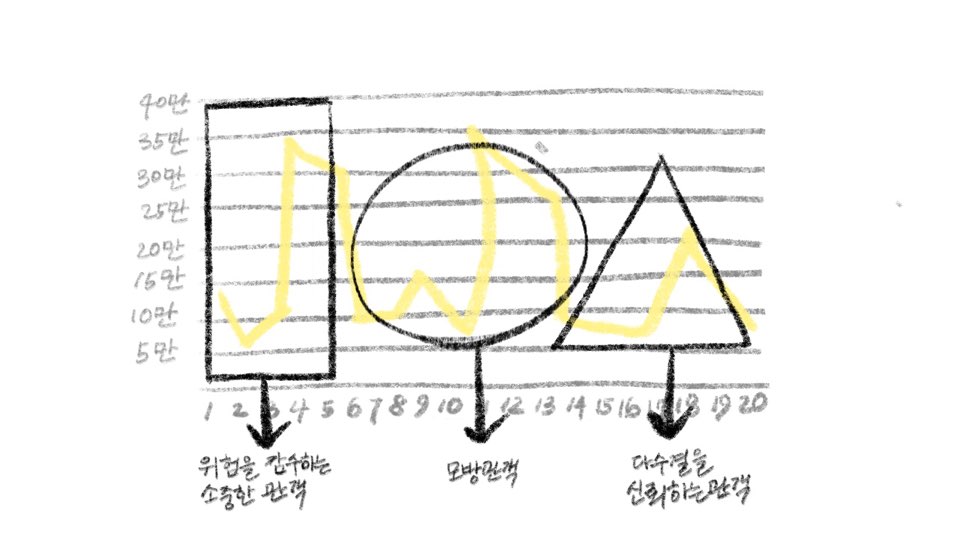 40만
35만
30만
25만
20만
15만
10만
5만
1 2 3 4 5 6 7 8 9 10 12 13 14 15 16 17 18 19 20
위험을 감수하는
소중한 관객
모방관객
다수결을
신뢰하는관객